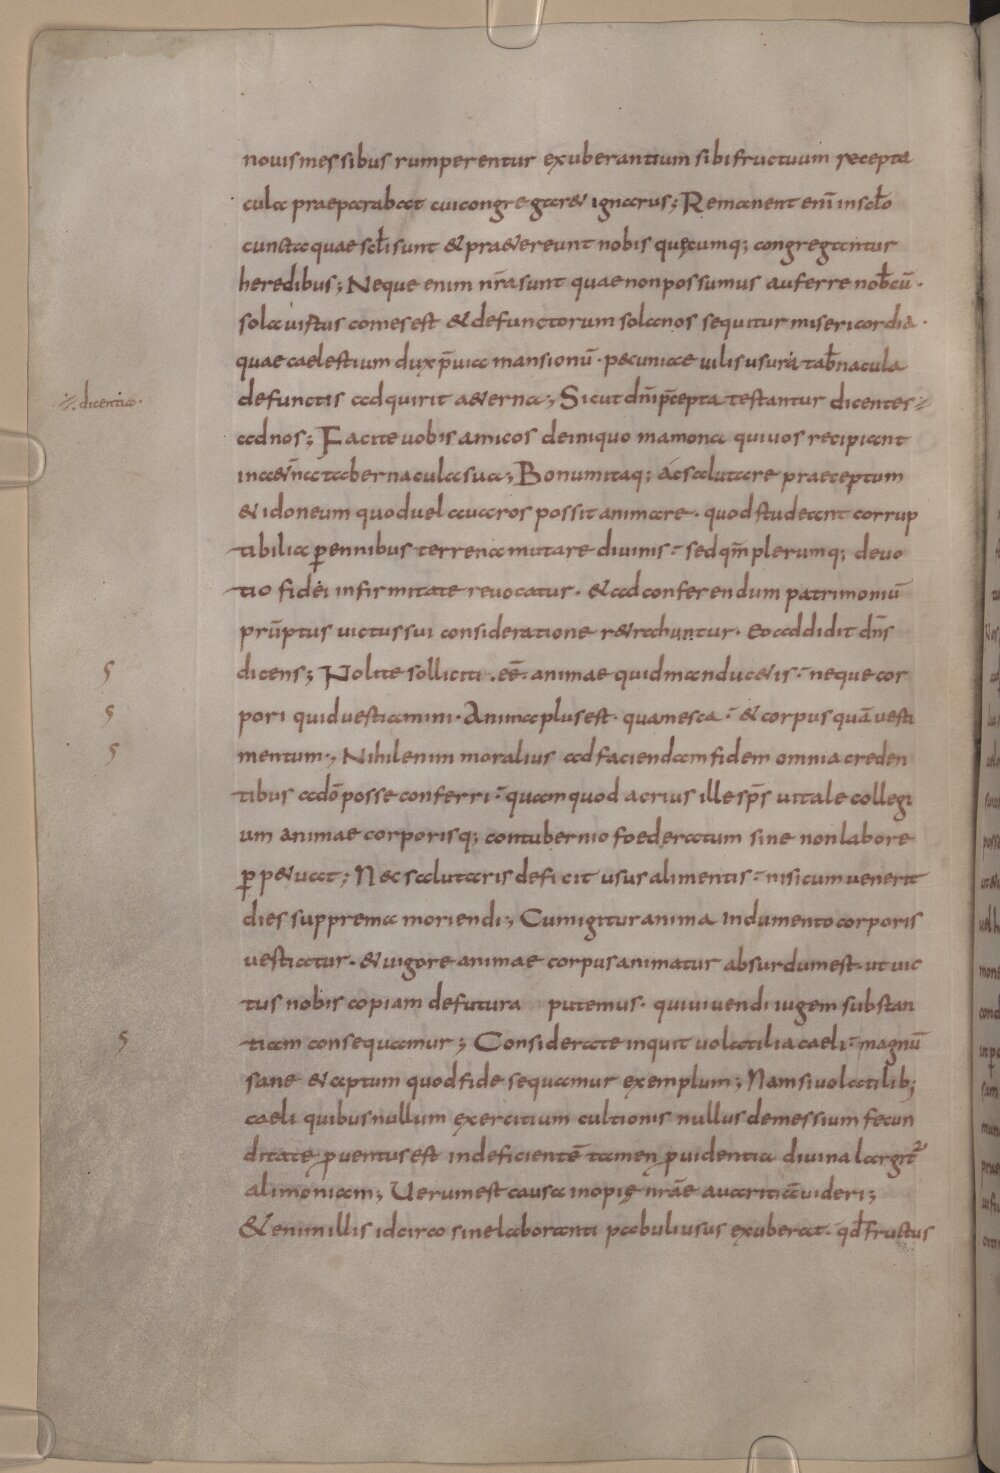 nouis messibus rumperentur exuberantium sibi fructuum recepta
cula praeparabat cui congregar& ignarus; Remanent eni᷒ in sc̄lo
cuncta quae sc̄li sunt & praeter eunt nobis quęcumq; congregantur
heredibus; Neque enim nr̄a sunt quae non possumus auferre nob̄cū·
sola uirtus comes est & defunctorum sola nos sequitur misericordia·
quae caelestium dux p̄uia mansionū· pecuniae uilis usura tab̄nacula
defunctis adquirit a&erna; Sicut dn̄i p̄cepta testantur dicentes
dicentia·
ad nos; Facite uobis amicos de iniquo mamona qui uos recipiant
in a&n̄a tabernacula sua; Bonum itaq; ac salutare praeceptum
& idoneum quod uel auaros possit animare· quod studeant corrup
tibilia p̱ennibus terrena mutare diuinis· sed qm̄ plerumq; deuo
tio fidei infirmitate reuocatur· & ad conferendum patrimoniū
prūptus uictus sui consideratione r&rahuntur· eo addidit dn̄s
dicens; Nolite solliciti .eē. animae quid manduc&is· neque cor
pori quid uestiamini· Anima plus est quam esca· & corpus quā uesti
mentum·; Nihil enim moralius ad faciendam fidem omnia creden
tibus a dō posse conferri· quam quod aerius ille sp̄s uitale collegi
um animae corporisq; contubernio foederatum sine non labore
p̱p&uat; Nec salutaris deficit usus alimentis· nisi cum uenerit
dies supprema moriendi; Cum igitur anima indumento corporis
uestiatur· & uigore animae corpus animatur absurdum est· ut uic
tus nobis copiam defutura putemus· qui uiuendi iugem substan
tiam consequamur; Considerate inquit uolatilia caeli· magnū
sane & aptum quod fide sequamur exemplum; Nam si uolatilib;
caeli quibus nullum exercitium cultionis nullus de messium fecun
ditate ꝓuentus est indeficientē tamen ꝓuidentia diuina largit᷑
alimoniam; Uerum est causa inopię nr̄ae auaritiā uideri;
&enim illis idcirco sine laboranti pabuli usus exuberat· qđ fructus